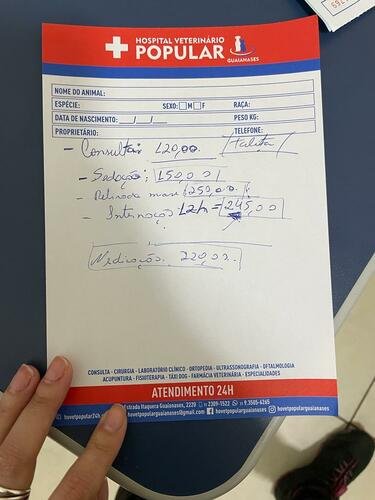 HOSPITAL VETERINÁRIO
POPULAR
GUAIANASES
NOME DO ANIMAL:
ESPÉCIE: SEXO: M F RAÇA:
DATA DE NASCIMENTO: __/__/__ PESO KG:
PROPRIETÁRIO: TELEFONE:
- Consulta: 120,00. Talita
- Sedação: 150,00
- Retirada 250,00.
- Internação 12h = 245,00
Medicação. 220,00.
CONSULTA - CIRURGIA - LABORATÓRIO CLÍNICO - ORTOPEDIA - ULTRASSONOGRAFIA - OFTALMOLOGIA
ACUPUNTURA - FISIOTERAPIA - TÁXI DOG - FARMÁCIA VETERINÁRIA - ESPECIALIDADES
ATENDIMENTO 24H
Estrada Itaquera Guaianases, 2220 11 2309-1522 11 9.3505-6265
hovetpopularguaianases@gmail.com hovetpopularguaianases hovetpopularguaianases